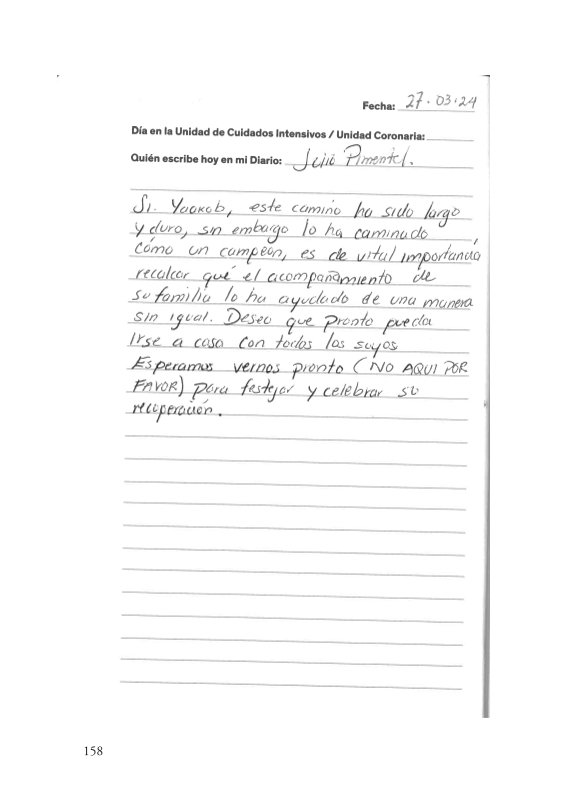 Fecha: 27.03.24
Día en la Unidad de Cuidados Intensivos / Unidad Coronaria:
Quién escribe hoy en mi Diario: Pimentel.
Sr. Yaakob, este camino ha sido largo
y duro, sin embargo lo ha caminado
cómo un campeón, es de vital importancia,
recalcar qué el acompañamiento de
su familia lo ha ayudado de una manera
sin igual. Deseo que pronto pueda
irse a casa con todos los suyos
Esperamos vernos pronto (NO AQUI POR
FAVOR) para festejar y celebrar su
recuperación.
158